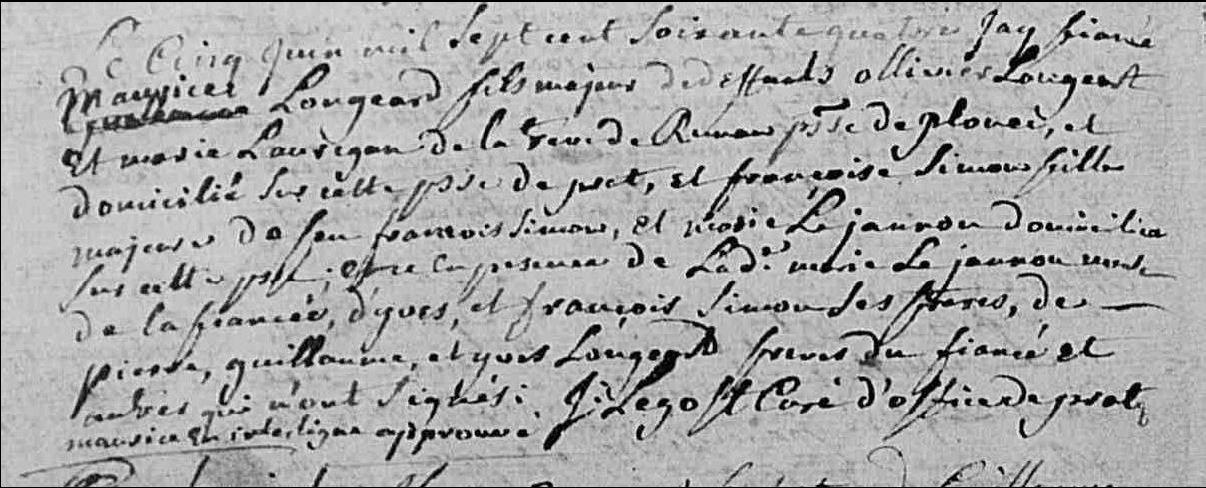 Le Cinq Juin mil Sept cent Soixante quatorze J'ay fiancé
Maurice
Guillaume Longeard fils majeur de deffunts ollivier Longeart
Et marie Lauregan de la treve de Runan psse de plouec, et
domicilié sur cette psse de prat, et françoise Simon fille
majeure de feu françois Simon, et marie Le jannou domicilièe
sur cette psse, et ce En presence de Ladte marie Le jannou mere
de la fiancée, d'yves, et françois Simon Ses freres, de
pierre, guillaume, et yves Longeard freres du fiancé et
autres qui n'ont Signés: J: Legoff Curé d'office de prat,
maurice En interligne approuvé.